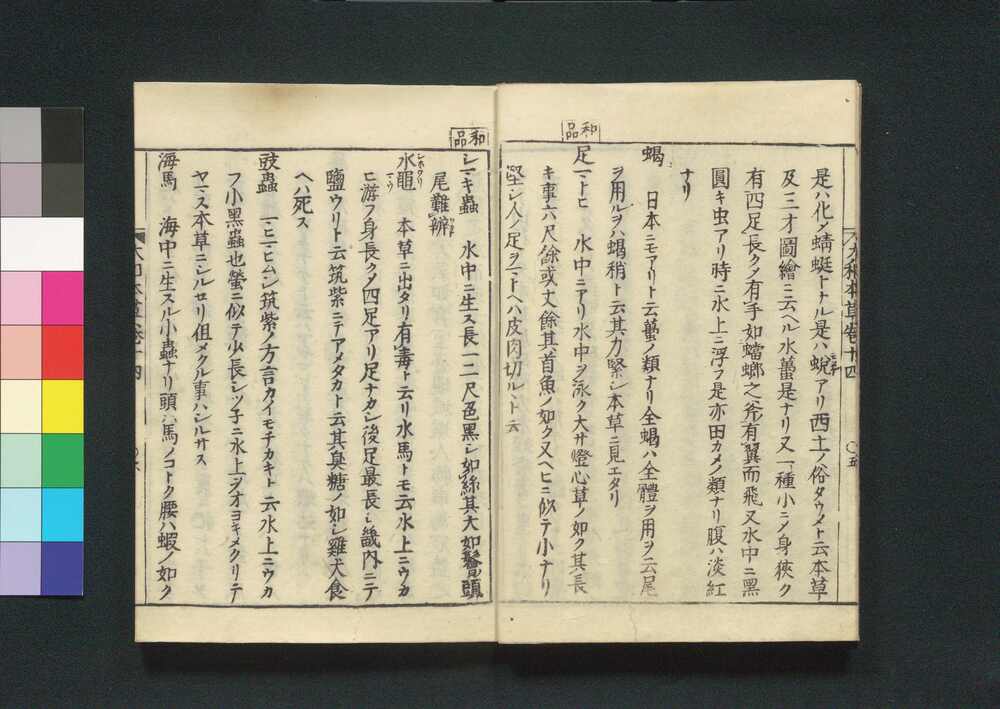 是ハ化〆蜻蜓トナル是ハ蛻アリ西土ノ俗タウメト云本草
及三才圖繪ニ云ヘル水蠆是ナリ又一種小ニ〆身狹ク
有四足長ク〆有手如蟷螂之斧有翼而飛又水中ニ黑
圓キ虫アリ時ニ水上ニ浮フ是亦田カメノ類ナリ腹ハ淡紅
ナリ
蝎 日本ニモアリト云蠆ノ類ナリ全蝎ハ全體ヲ用ヲ云尾
ヲ用ルヲハ蝎稍ト云其力緊シ本草ニ見エタリ
和品
足マトヒ 水中ニアリ水中ヲ泳ク大サ燈心草ノ如ク其長
キ事六尺餘或丈餘其首魚ノ如ク又ヘヒニ似テ小ナリ
堅シ人ノ足ヲマトヘハ皮肉切ルヽト云
大和本草卷十四 〇五
和品
シマキ蟲 水中ニ生ス長一二尺色黑シ如絲其大如鬢頭
尾難辨
水黽 本草ニ出タリ有毒ト云リ水馬トモ云水上ニウカ
ヒ游フ身長ク〆四足アリ足ナカシ後足最長シ畿內ニテ
鹽ウリト云筑紫ニテアメタカト云其臭糖ノ如シ雞犬食
ヘハ死ス
豉蟲 マヒマヒムシ筑紫ノ方言カイモチカキト云水上ニウカ
フ小黑蟲也螢ニ似テ少長シツ子ニ水上ヲオヨキメクリテ
ヤマス本草ニシルセリ但メクル事ハシルサス
海馬 海中ニ生スル小蟲ナリ頭ハ馬ノコトク腰ハ蝦ノ如ク
大和本草卷十四 〇六